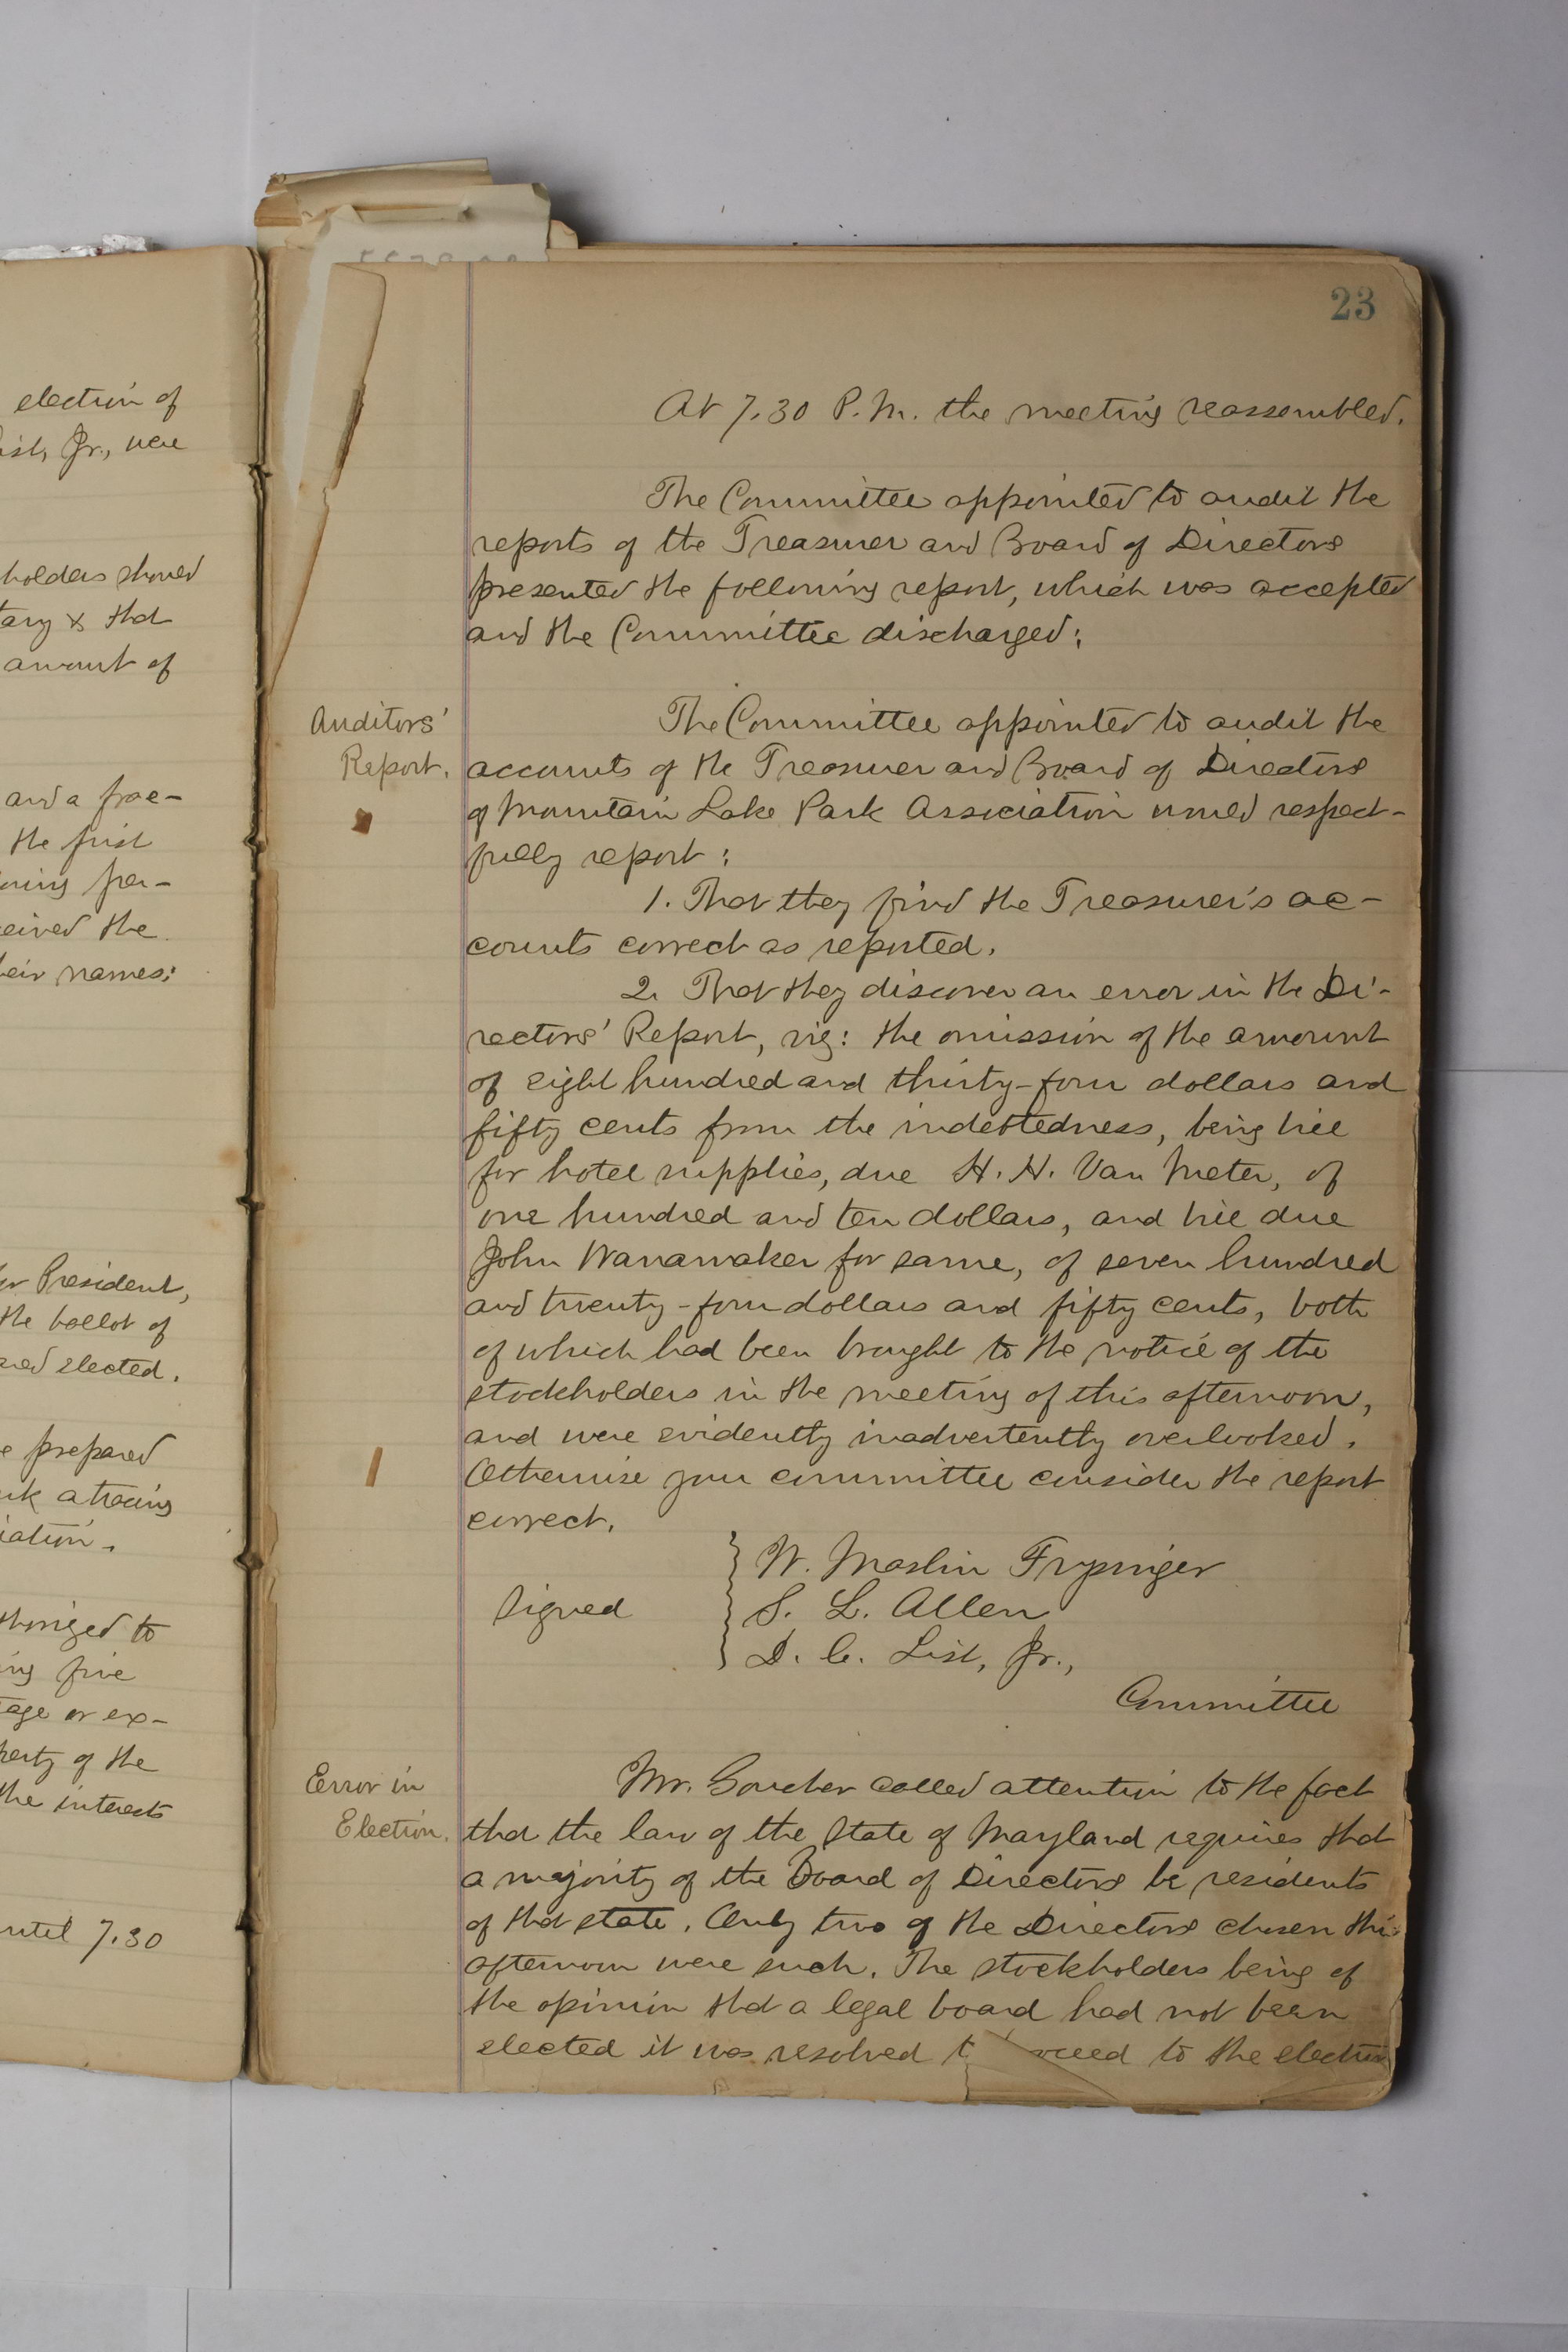 election of
ist, Jr., were
holders showed
tary & that
amount of
and a frac-
the first
lowing per-
ceived the
heir names:
for President,
the ballot of
ared elected.
e prepared
rk a tracing
iation.
thorized to
ing five
tage or ex-
perty of the
the interests
until 7.30
23
At 7.30 P.M. the meeting reassembled.
The Committee appointed to audit the
reports of the Treasurer and Board of Directors
presented the following report, which was accepted
and the Committee discharged:
Auditors'
Report.
The Committee appointed to audit the
accounts of the Treasurer and Board of Directors
of Mountain Lake Park Association would respect-
fully report:
1. That they find the Treasurer's ac-
counts correct as reported.
2. That they discover an error in the Di-
rectors' Report, viz: the omission of the amount
of eight hundred and thirty-four dollars and
fifty cents from the indebtedness, being bill
for hotel supplies, due H. H. Van Meter, of
one hundred and ten dollars, and bill due
John Wanamaker for same, of seven hundred
and twenty-four dollars and fifty cents, both
of which had been brought to the notice of the
stockholders in the meeting of this afternoon,
and were evidently inadvertently overlooked.
Otherwise your committee consider the report
correct.
Signed
W. Maslin Frysinger
S. L. Allen
D. C. List, Jr.,
Committee
Error in
Election.
Mr. Goucher called attention to the fact
that the law of the State of Maryland requires that
a majority of the Board of Directors be residents
of that state. Only two of the Directors chosen this
afternoon were such. The stockholders being of
the opinion that a legal board had not been
elected it was resolved t oceed to the election